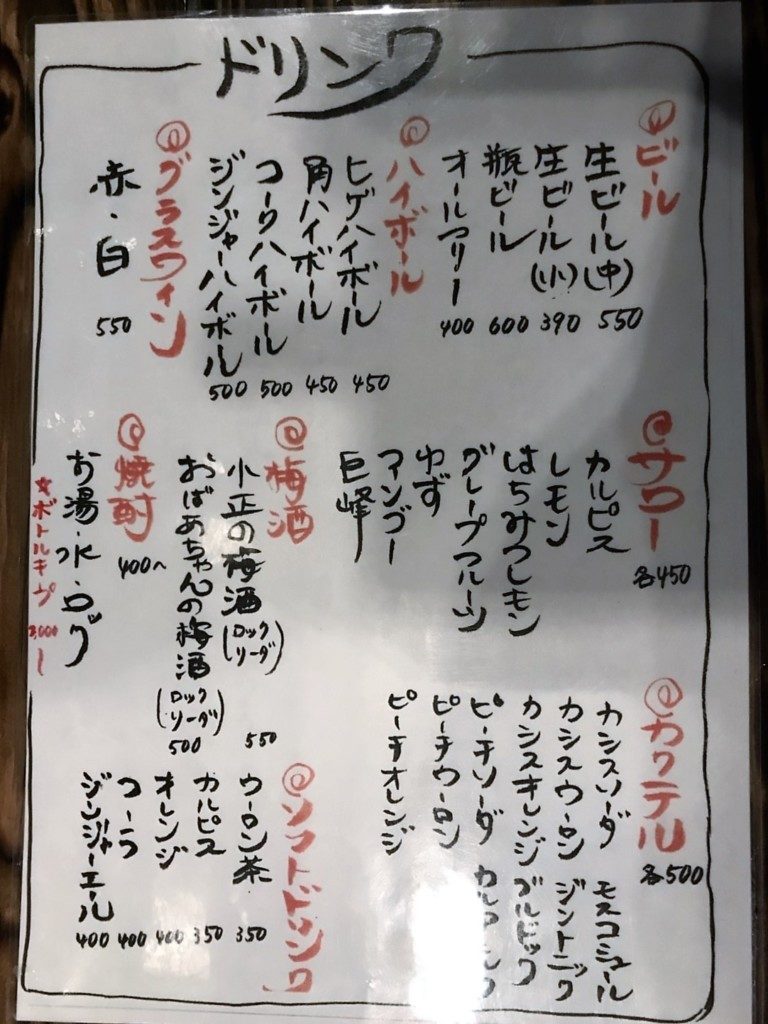 ドリンク
ビール
生ビール(中) 550
生ビール(小) 390
瓶ビール 600
オールフリー 400
ハイボール
ヒゲハイボール 450
角ハイボール 450
コークハイボール 500
ジンジャーハイボール 500
グラスワイン
赤・白 550
サワー 各450
カルピス
レモン
はちみつレモン
グレープフルーツ
ゆず
マンゴー
巨峰
梅酒
小正の梅酒(ロック ソーダ) 550
おばあちゃんの梅酒(ロック ソーダ) 500
焼酎 400〜
お湯・水・ロック
ボトルキープ
カクテル 各500
カシスソーダ モスコミュール
カシスウーロン ジントニック
カシスオレンジ ブルドッグ
ピーチソーダ
ピーチウーロン
ピーチオレンジ
ソフトドリンク
ウーロン茶 350
カルピス 350
オレンジ 400
コーラ 400
ジンジャーエール 400